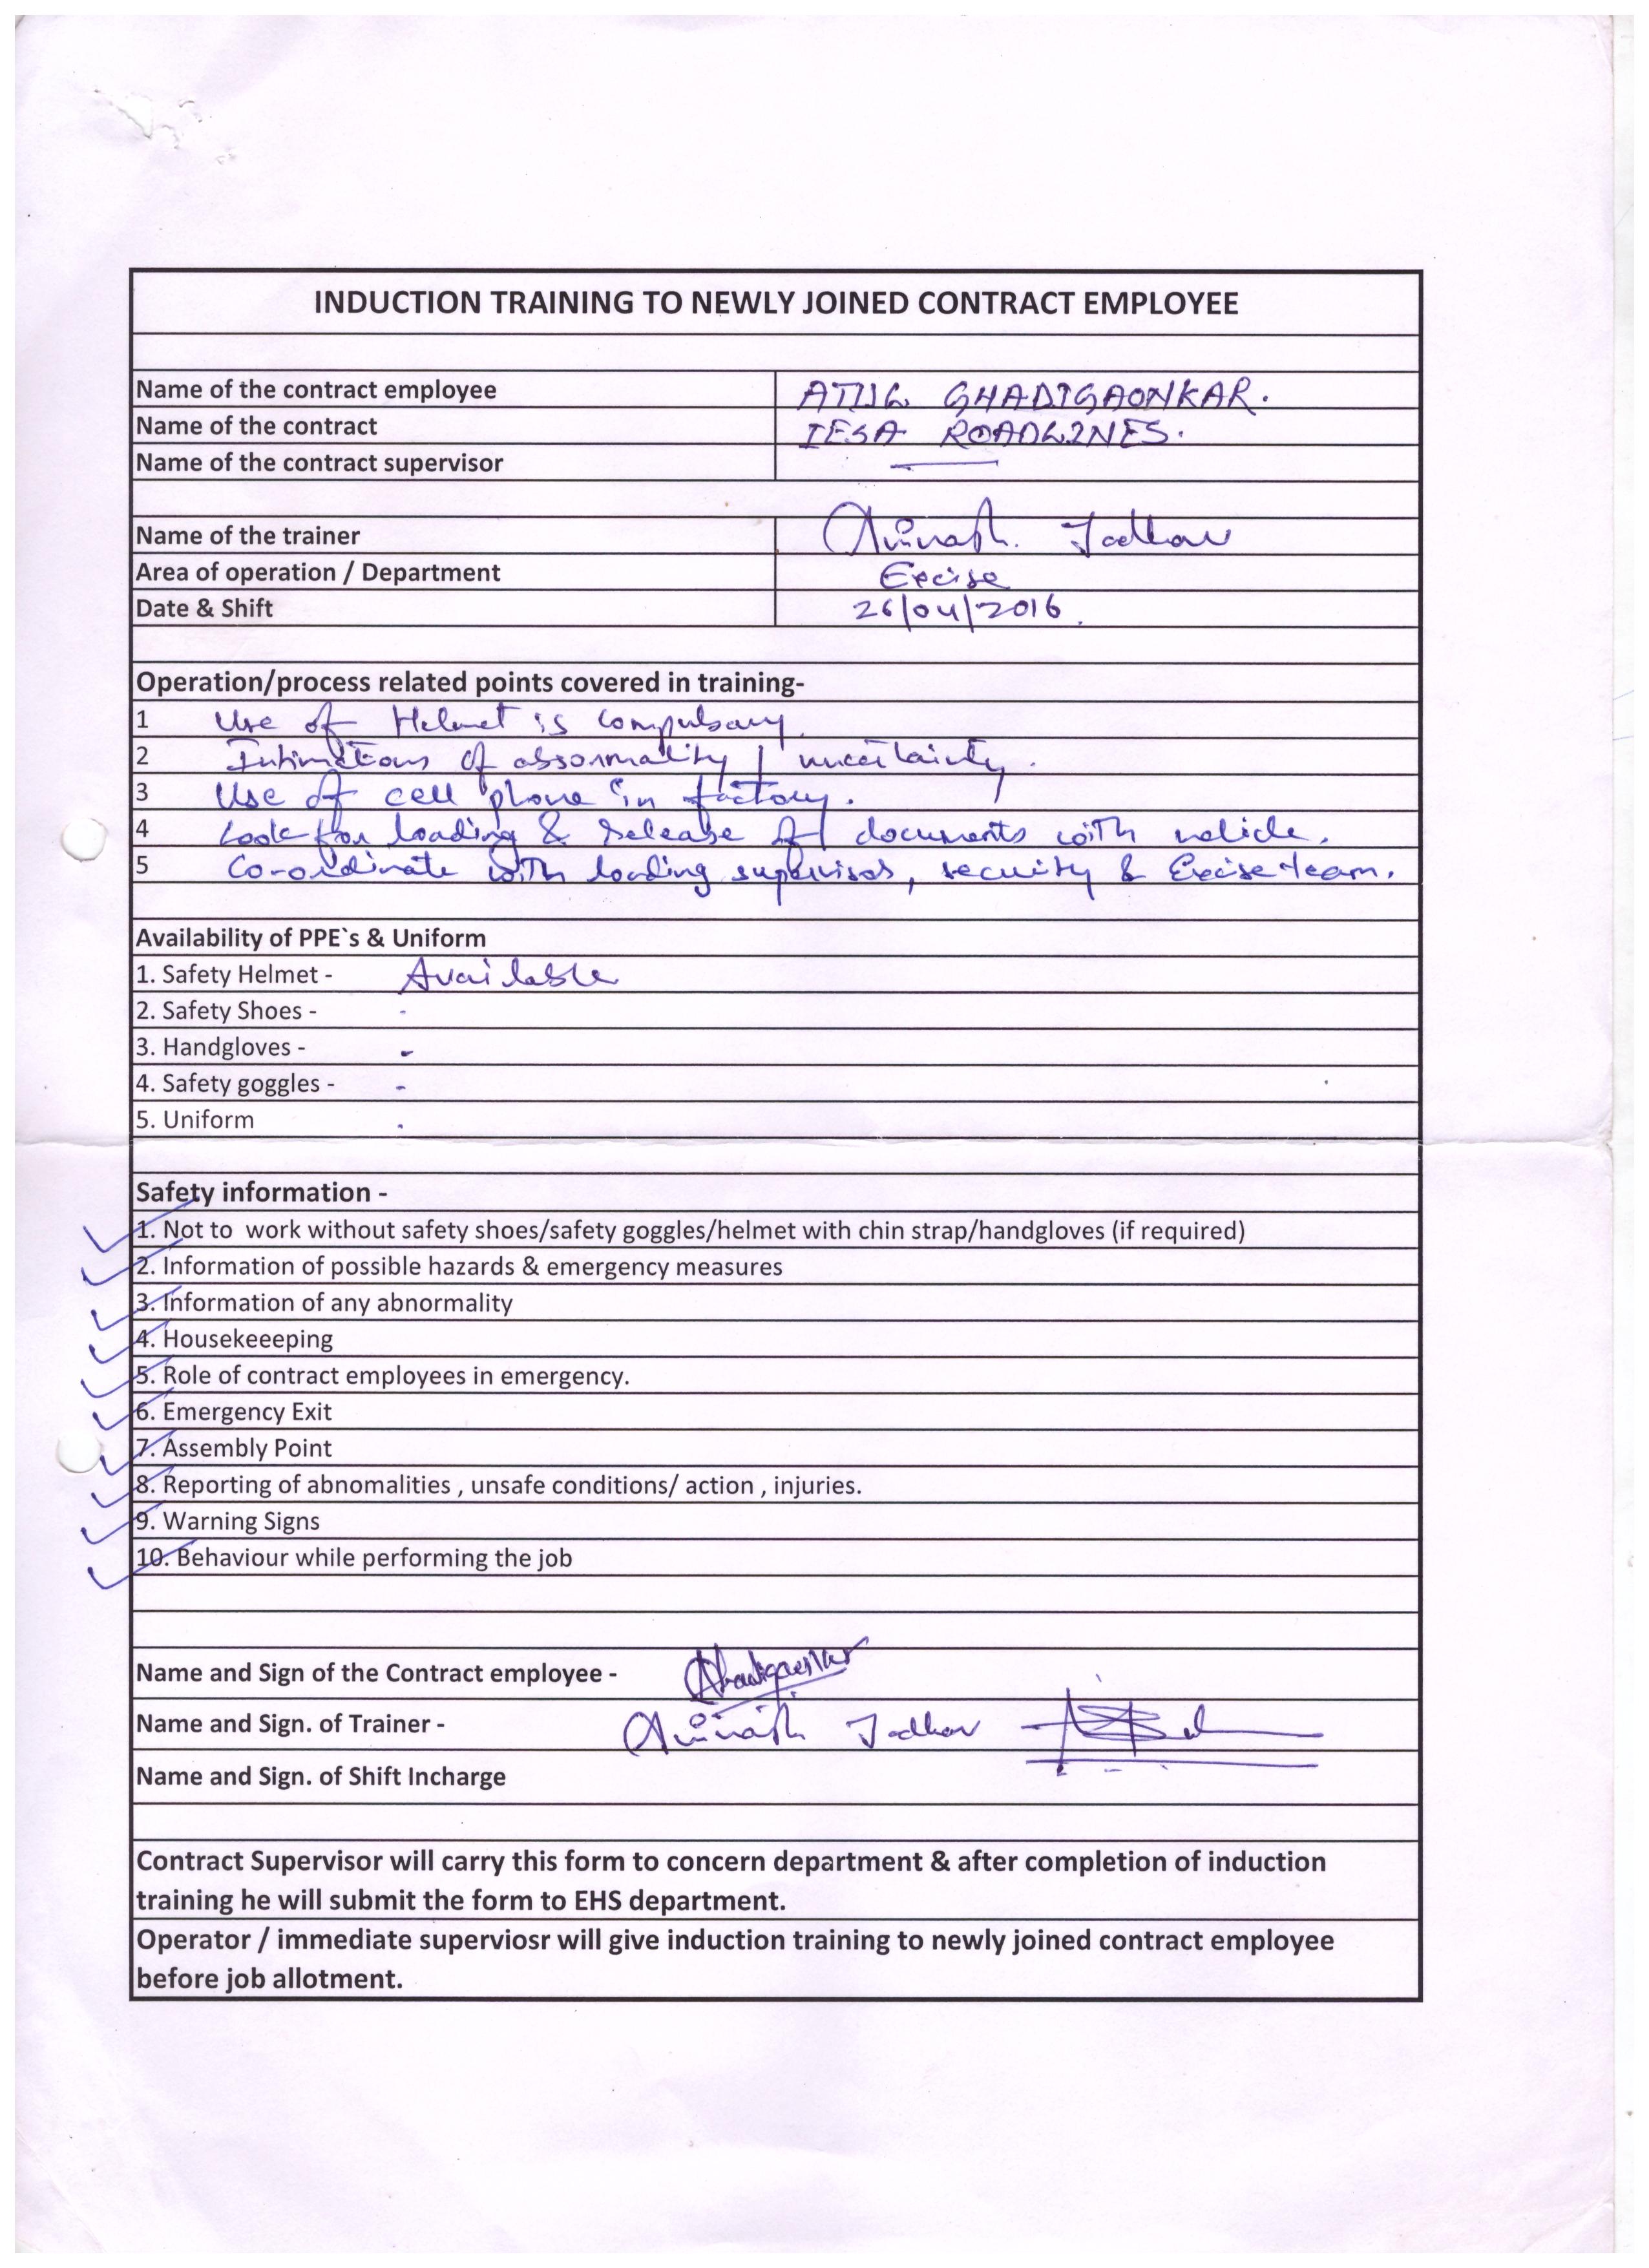 INDUCTION TRAINING TO NEWLY JOINED CONTRACT EMPLOYEE
Name of the contract employee GHADIGAONKAR.
Name of the contract IESA ROADLINES.
Name of the contract supervisor —
Name of the trainer Avinash. Jadhav
Area of operation / Department Excise
Date & Shift 26/04/2016.
Operation/process related points covered in training-
1 Use of Helmet is compulsary.
2 Intimations of abnormality / uncertainty.
3 Use of cell phone in factory.
4 Look for loading & release of documents with vehicle.
5 Co-ordinate with loading supervisor, security & Excise team.
Availability of PPE`s & Uniform
1. Safety Helmet - Available
2. Safety Shoes - -
3. Handgloves - -
4. Safety goggles - -
5. Uniform .
Safety information -
1. Not to work without safety shoes/safety goggles/helmet with chin strap/handgloves (if required)
2. Information of possible hazards & emergency measures
3. Information of any abnormality
4. Housekeeeping
5. Role of contract employees in emergency.
6. Emergency Exit
7. Assembly Point
8. Reporting of abnomalities , unsafe conditions/ action , injuries.
9. Warning Signs
10. Behaviour while performing the job
Name and Sign of the Contract employee -
Name and Sign. of Trainer - Avinash Jadhav
Name and Sign. of Shift Incharge
Contract Supervisor will carry this form to concern department & after completion of induction
training he will submit the form to EHS department.
Operator / immediate superviosr will give induction training to newly joined contract employee
before job allotment.